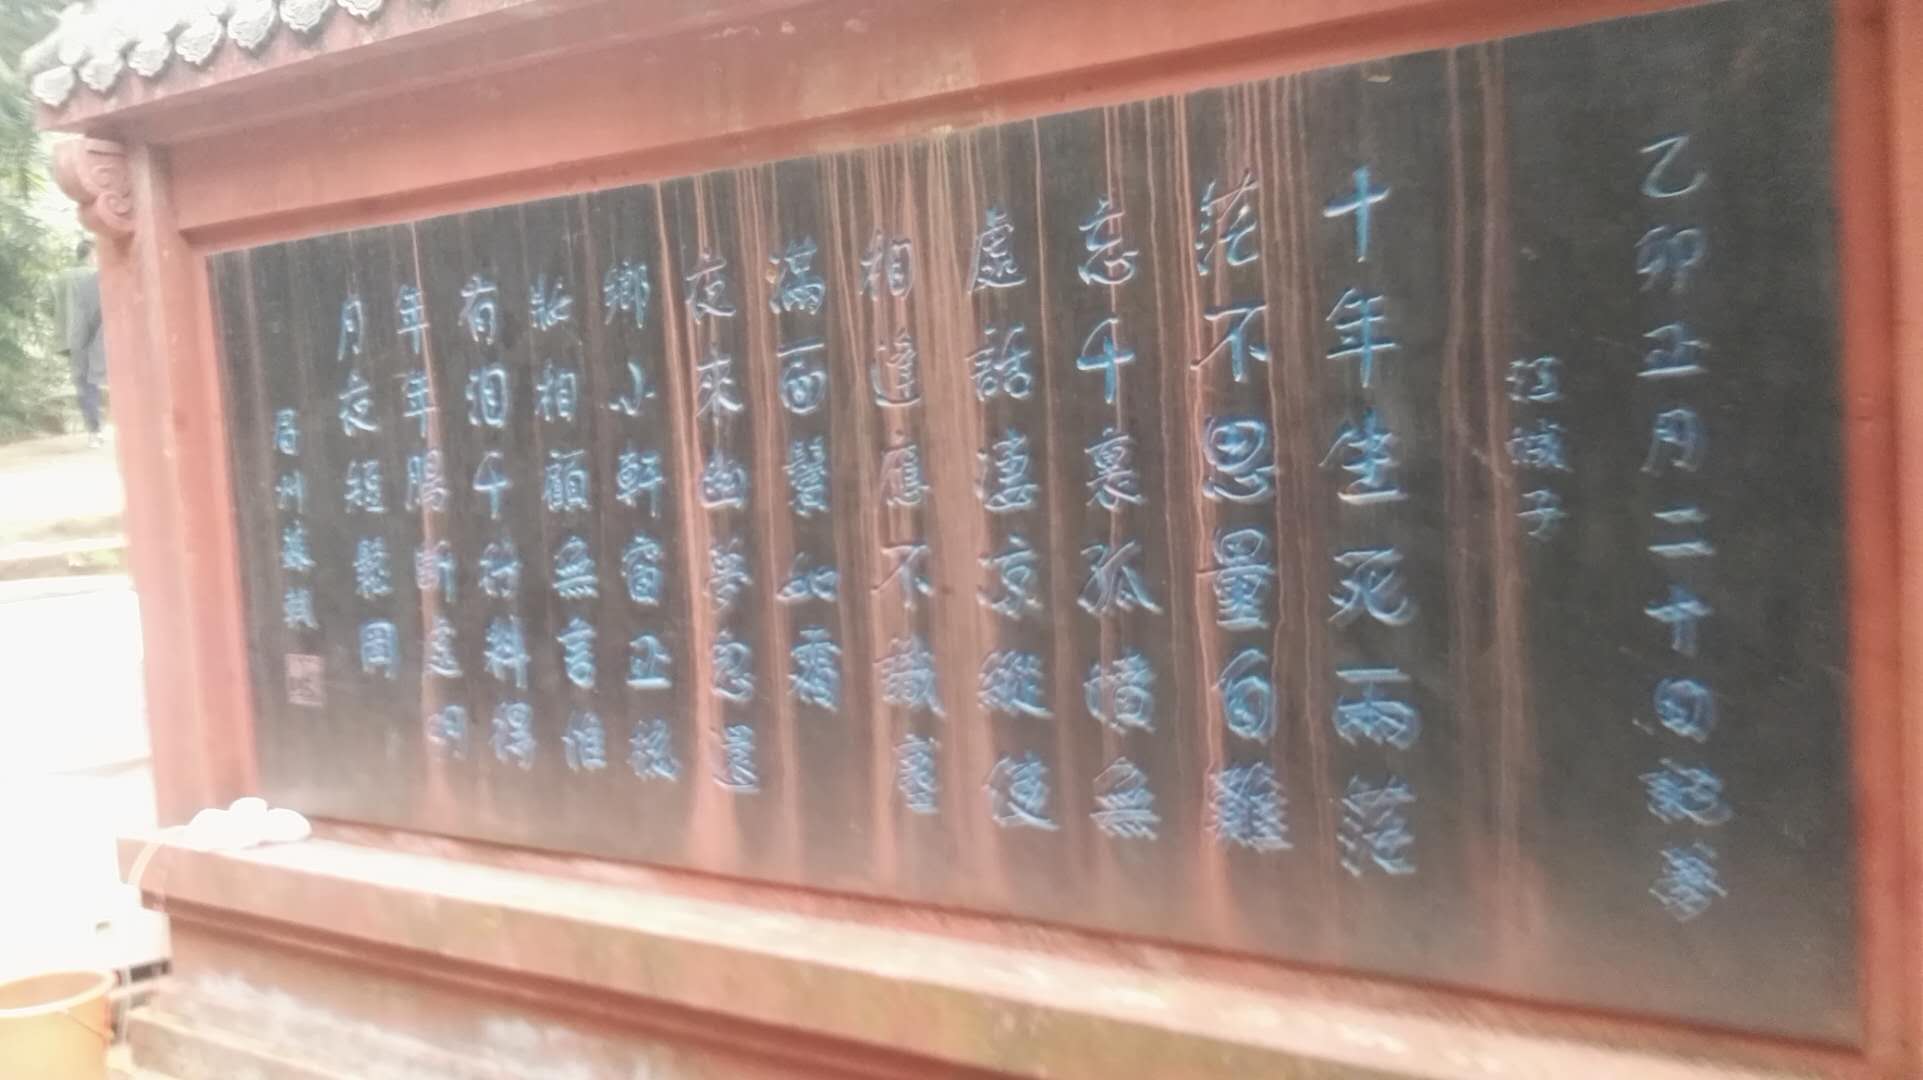 乙卯正月二十日記夢
江城子
十年生死兩茫
茫不思量自難
忘千裏孤墳無
處話淒涼縱使
相逢應不識塵
滿面鬢如霜
夜來幽夢忽還
鄉小軒窗正梳
妝相顧無言惟
有泪千行料得
年年腸断處明
月夜短鬆岡
眉州蘇軾